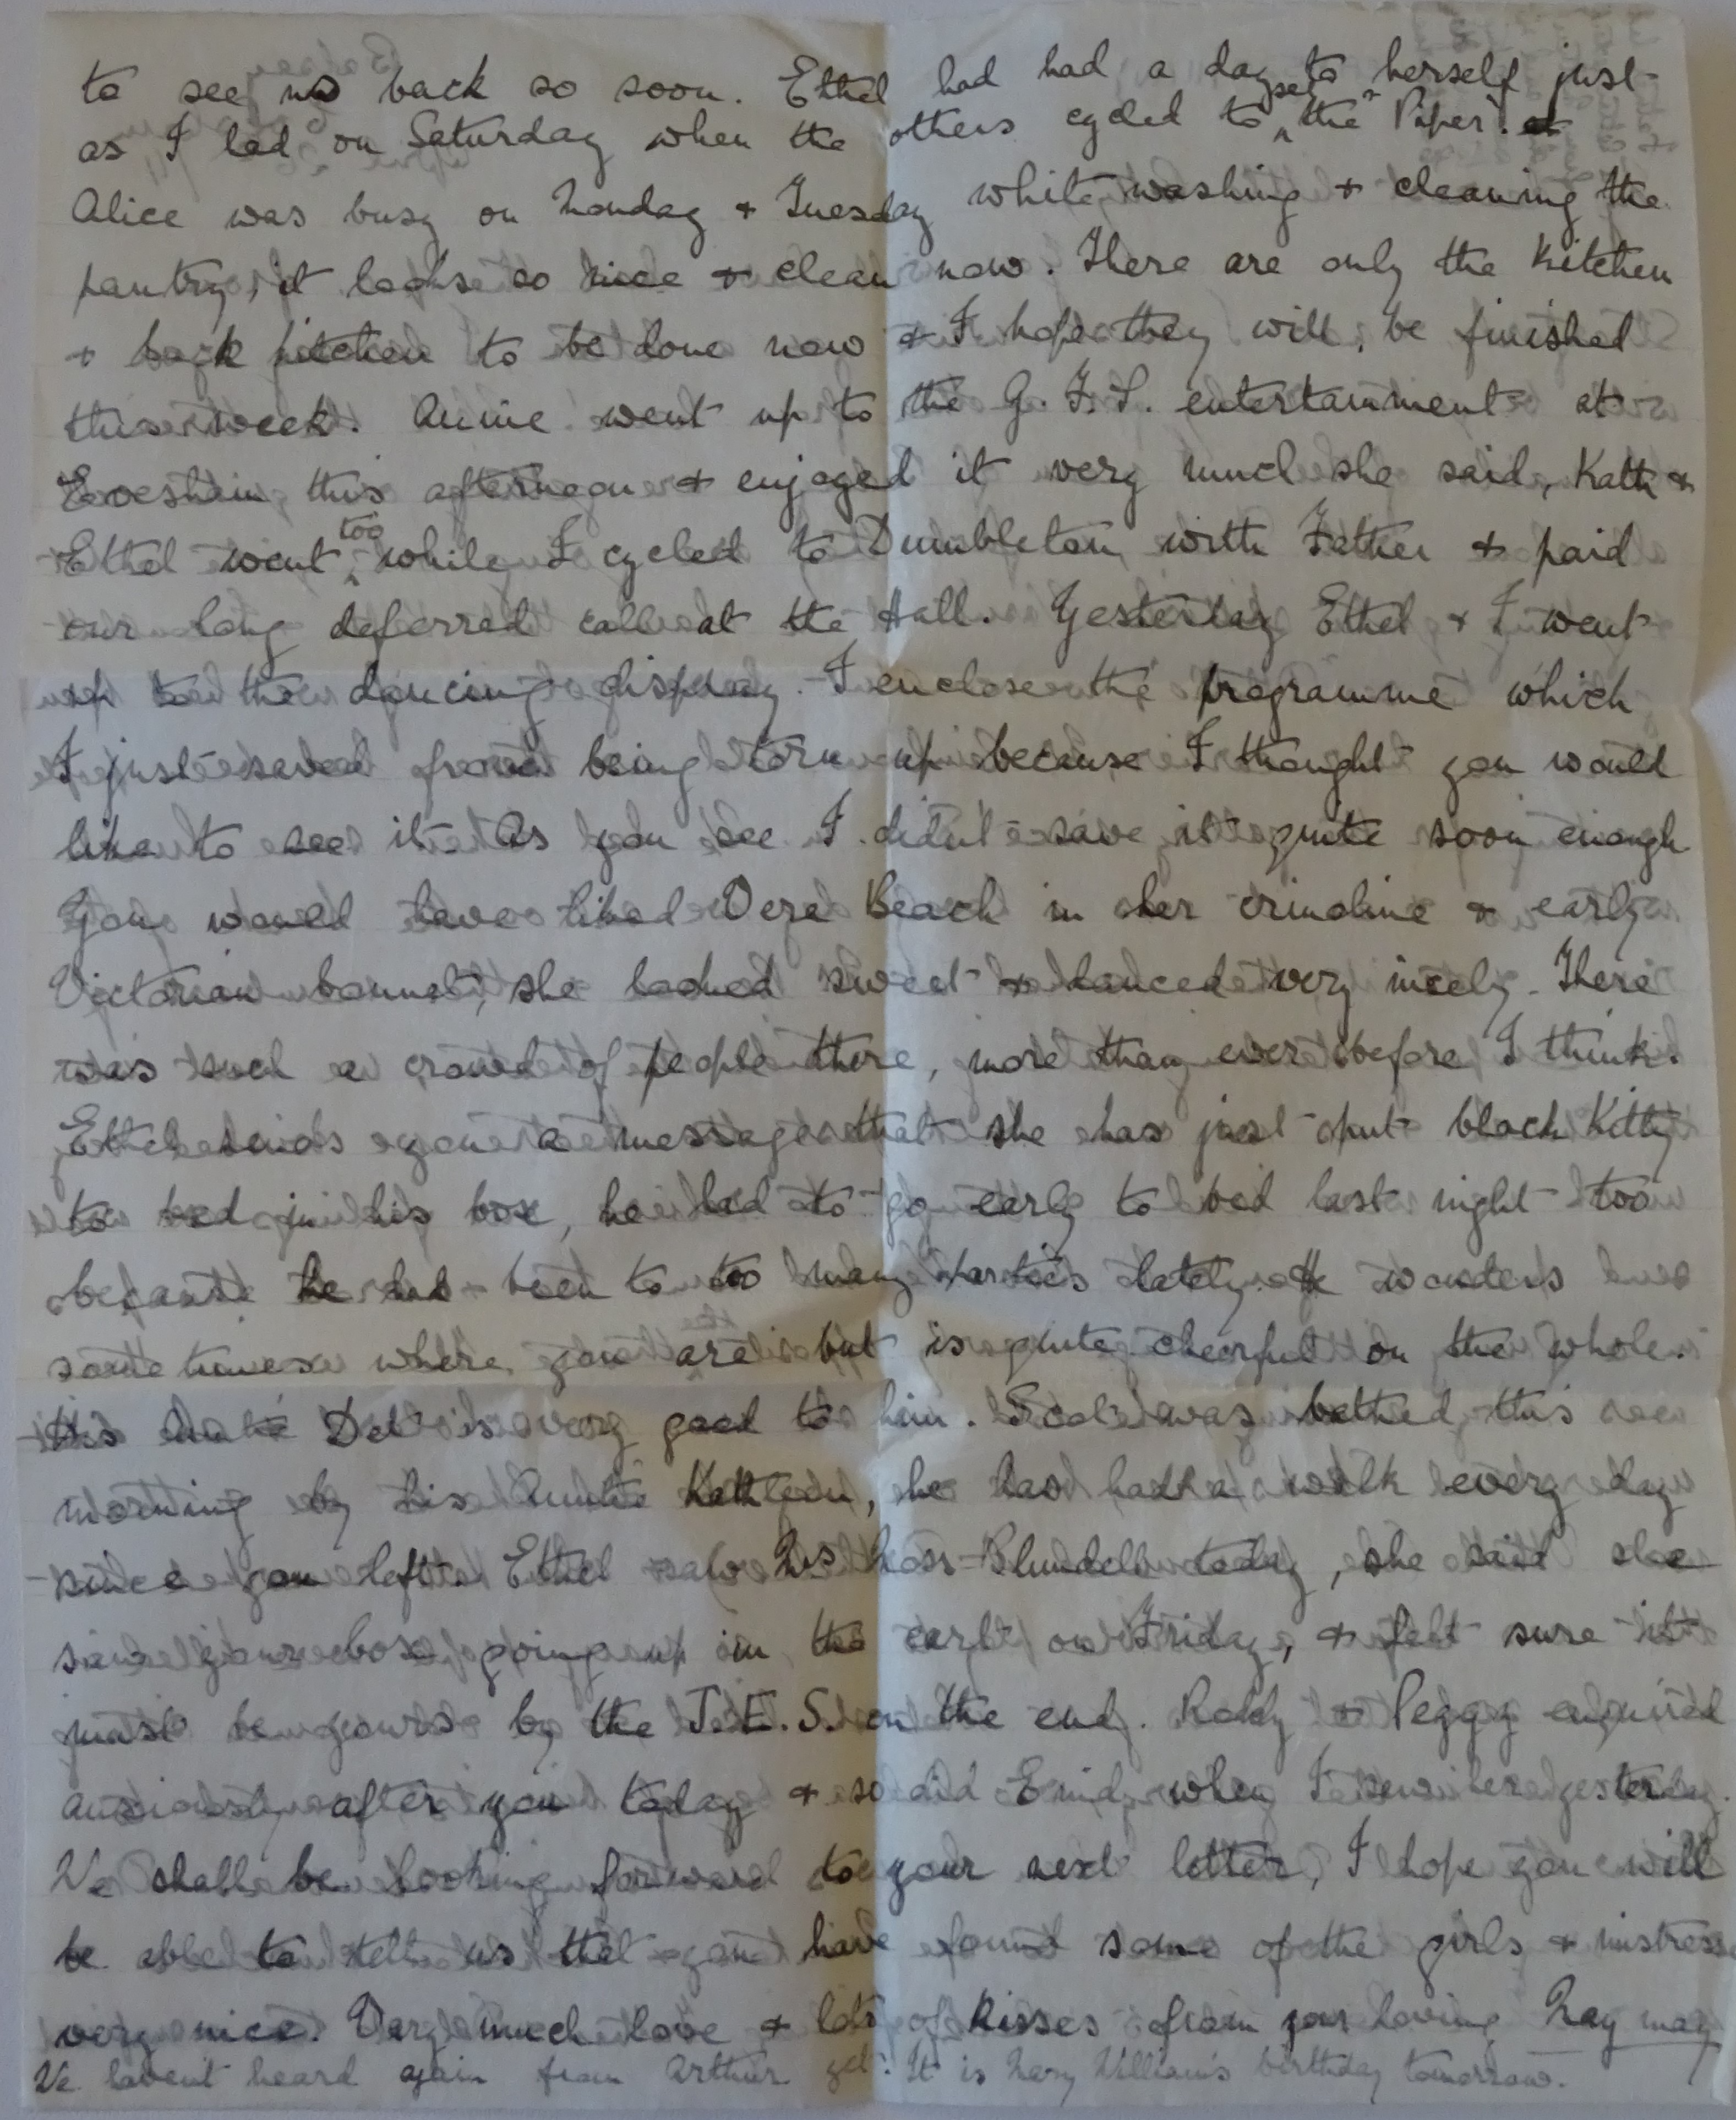 to see us back so soon. Ethel had had a day to herself just
as I had on Saturday when the others cycled to see the "Piper".
Alice was busy on Monday & Tuesday white washing & cleaning the
pantry, it looks so nice & clean now. There are only the kitchen
& back kitchen to be done now & I hope they will be finished
this week. Annie went up to the G.F.S. entertainment at
Evesham this afternoon & enjoyed it very much she said, Kath &
Ethel went too while I cycled to Dumbleton with Father & paid
our long deferred call at the Hall. Yesterday Ethel & I went
up to the dancing display. I enclose the programme which
I just saved from being torn up because I thought you would
like to see it. As you see I didn't save it quite soon enough
You would have liked Vera Beach in her crinoline & early
Victorian bonnet, she looked sweet & danced very nicely. There
was such a crowd of people there, more than ever before I think.
Ethel sends you a message that she has just put black Kitty
to bed in his box, he had to go early to bed last night too
because he had been to too many parties lately. He wonders
sometimes where you are but is quite cheerful on the whole.
His Del is very good to him. Scot was bathed this
morning by his Auntie Kathleen, he has had a walk every day
since you left. Ethel saw Mrs Blundell today, she said she
saw your box going up in the cart on Friday, & felt sure it
must be yours by the J.E.S. on the end. Roddy & Peggy enquired
anxiously after you today & so did Enid when I saw her yesterday.
We shall be looking forward to your next letter, I hope you will
be able to tell us that you have found some of the girls & mistress
very nice. Very much love & lots of kisses from your loving May may
We havent heard again from Arthur yet. It is Mary William's birthday tomorrow.